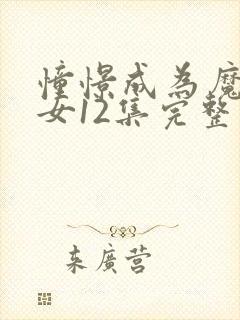 憧憬成為魔
女12集完整
来廣营